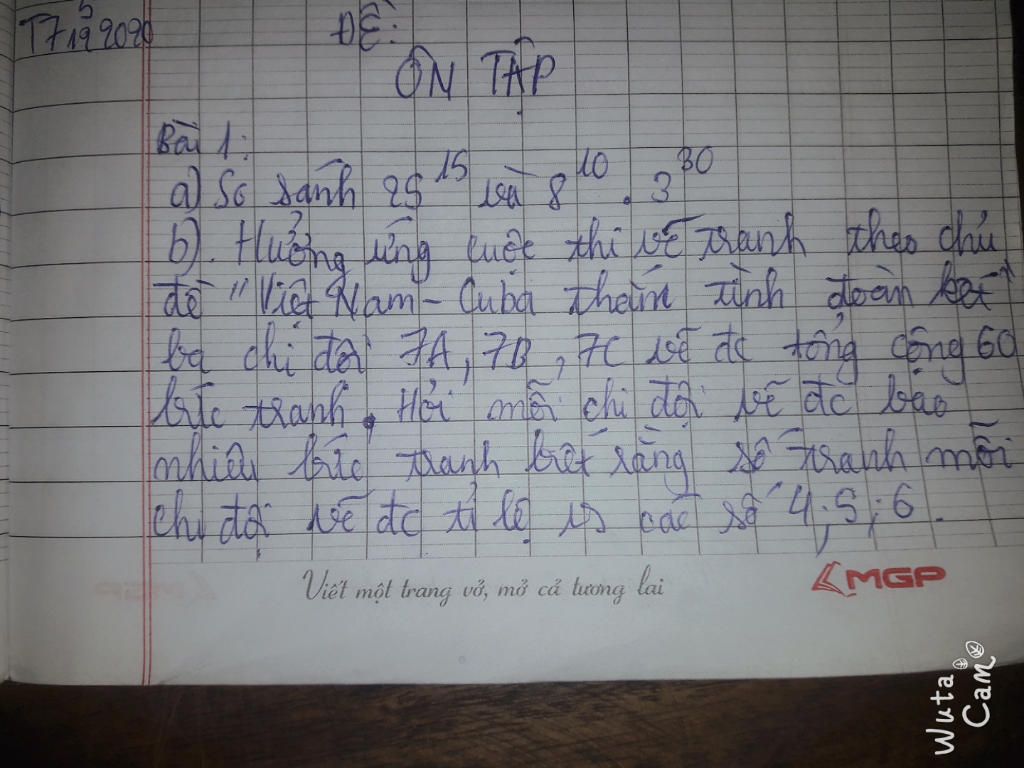 T7 19 5 2020
ĐỀ:
ÔN TẬP
Bài 1:
a) So sánh 25^15 và 8^10 . 3^30
b). Hưởng ứng cuộc thi vẽ tranh theo chủ
đề "Việt Nam - Cuba thắm tình đoàn kết"
ba chi đội 7A, 7B, 7C vẽ đc tổng cộng 60
bức tranh. Hỏi mỗi chi đội vẽ đc bao
nhiêu bức tranh biết rằng số tranh mỗi
chi đội vẽ đc tỉ lệ vs các số 4; 5; 6.
Viết một trang vở, mở cả tương lai
MGP
Wuta
Cam